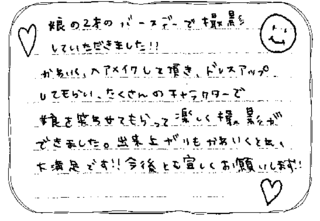 娘の2才のバースデーで撮影
していただきました!!
かわいく、ヘアメイクして頂き、ドレスアップ
してもらい、たくさんのキャラクターで
娘を笑わせてもらって楽しく撮影が
できました。出来上がりもかわいくとれ、
大満足です!!今後とも宜しくお願いします!